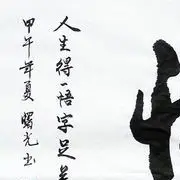 人生得一悟字足矣
甲午年夏 曙光书